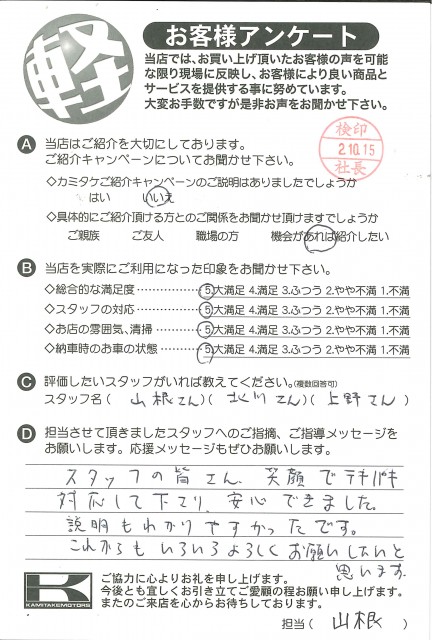 軽
お客様アンケート
当店では、お買い上げ頂いたお客様の声を可能
な限り現場に反映し、お客様により良い商品と
サービスを提供する事に努めています。
大変お手数ですが是非お声をお聞かせ下さい。
検印
2.10.15
社長
A 当店はご紹介を大切にしております。
ご紹介キャンペーンについてお聞かせ下さい。
◇カミタケご紹介キャンペーンのご説明はありましたでしょうか
はい いいえ
◇具体的にご紹介頂ける方とのご関係をお聞かせ頂けますでしょうか
ご親族 ご友人 職場の方 機会があれば紹介したい
B 当店を実際にご利用になった印象をお聞かせ下さい。
◇総合的な満足度……………5.大満足 4.満足 3.ふつう 2.やや不満 1.不満
◇スタッフの対応……………5.大満足 4.満足 3.ふつう 2.やや不満 1.不満
◇お店の雰囲気、清掃………5.大満足 4.満足 3.ふつう 2.やや不満 1.不満
◇納車時のお車の状態………5.大満足 4.満足 3.ふつう 2.やや不満 1.不満
C 評価したいスタッフがいれば教えてください。(複数回答可)
スタッフ名(山根さん)(北川さん)(上野さん)
D 担当させて頂きましたスタッフへのご指摘、ご指導メッセージを
お願いします。応援メッセージもぜひお願いします。
スタッフの皆さん、笑顔でテキパキ
対応して下さり、安心できました。
説明もわかりやすかったです。
これからもいろいろよろしくお願いしたいと
思います。
K
KAMITAKEMOTORS
ご協力に心よりお礼を申し上げます。
今後とも宜しくお引き立てご愛顧の程お願い申し上げます。
またのご来店を心からお待ちしております。
担当(山根)